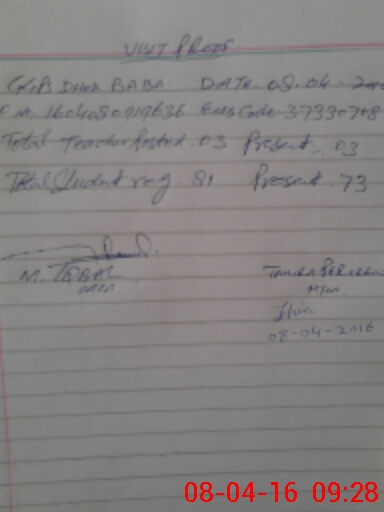 VISIT PROOF
GGPS DHOK BABA DATE. 08.04.
1604080919636 EmisCode 37330708
Total Teacher Posted. 03 Present. 03
Total Student reg. 81 Present. 73
M. IQBAL
08-04-2016
08-04-16 09:28